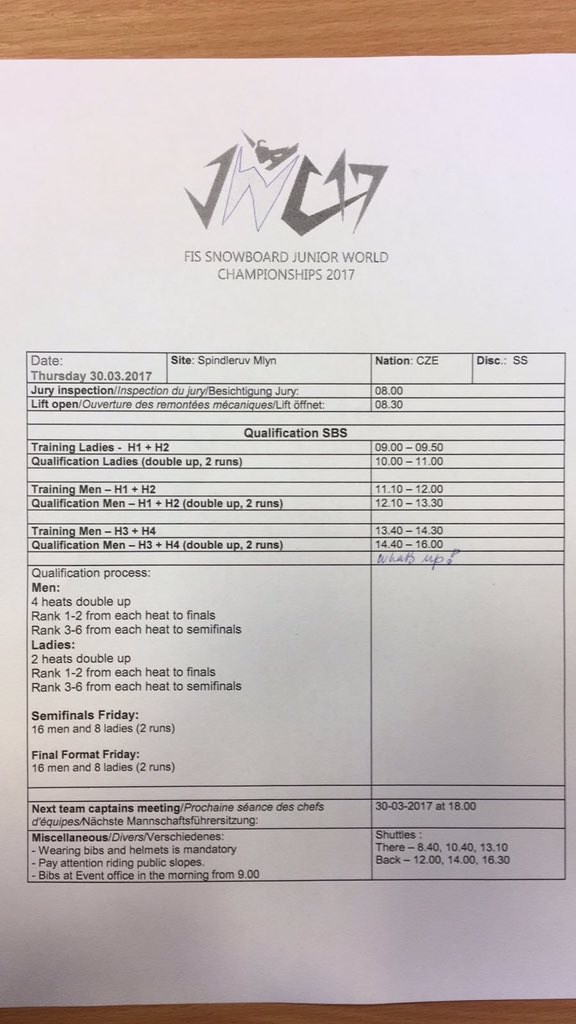 JWC17
FIS SNOWBOARD JUNIOR WORLD
CHAMPIONSHIPS 2017
Date:
Thursday 30.03.2017
Site: Spindleruv Mlyn
Nation: CZE
Disc.: SS
Jury inspection/Inspection du jury/Besichtigung Jury: 08.00
Lift open/Ouverture des remontées mécaniques/Lift öffnet: 08.30
Qualification SBS
Training Ladies - H1 + H2 09.00 – 09.50
Qualification Ladies (double up, 2 runs) 10.00 – 11.00
Training Men – H1 + H2 11.10 – 12.00
Qualification Men – H1 + H2 (double up, 2 runs) 12.10 – 13.30
Training Men – H3 + H4 13.40 – 14.30
Qualification Men – H3 + H4 (double up, 2 runs) 14.40 – 16.00
what's up?
Qualification process:
Men:
4 heats double up
Rank 1-2 from each heat to finals
Rank 3-6 from each heat to semifinals
Ladies:
2 heats double up
Rank 1-2 from each heat to finals
Rank 3-6 from each heat to semifinals
Semifinals Friday:
16 men and 8 ladies (2 runs)
Final Format Friday:
16 men and 8 ladies (2 runs)
Next team captains meeting/Prochaine séance des chefs
d'équipes/Nächste Mannschaftsführersitzung:
30-03-2017 at 18.00
Miscellaneous/Divers/Verschiedenes:
- Wearing bibs and helmets is mandatory
- Pay attention riding public slopes.
- Bibs at Event office in the morning from 9.00
Shuttles :
There – 8.40, 10.40, 13.10
Back – 12.00, 14.00, 16.30